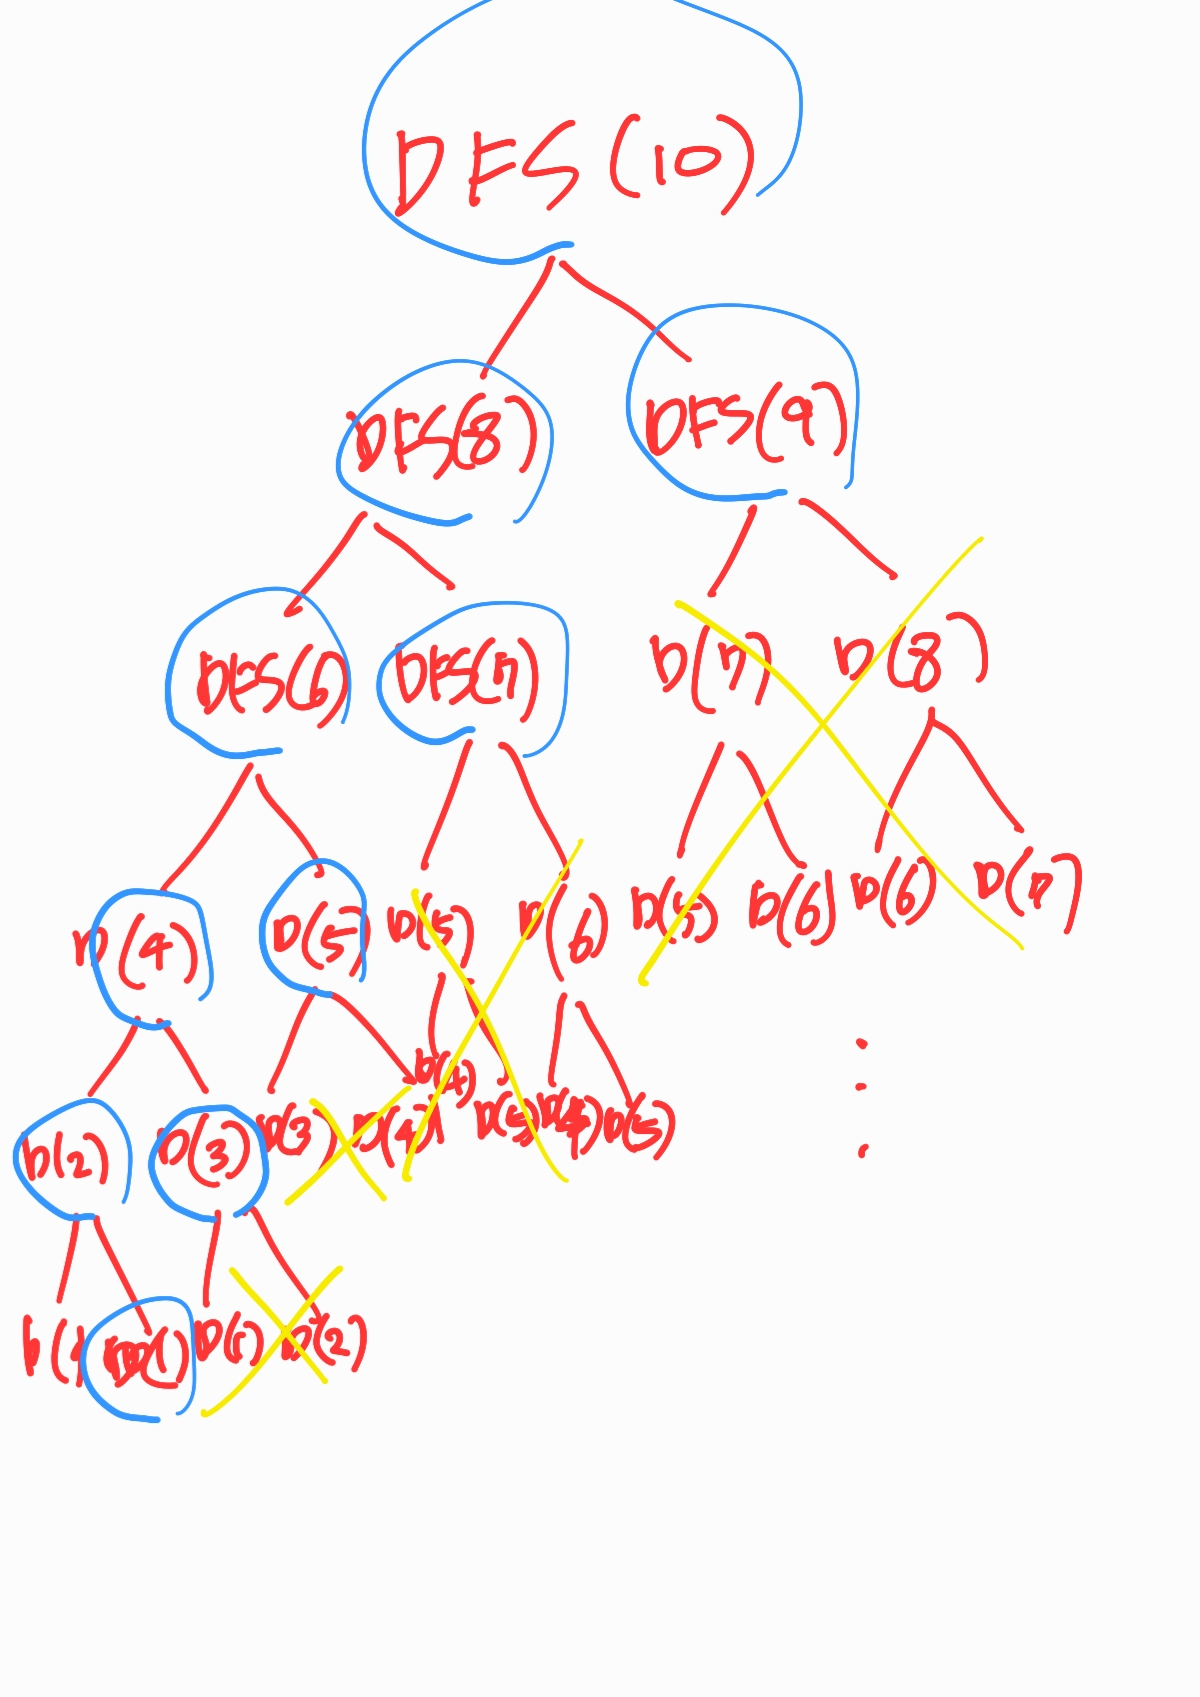 DFS(10)
DFS(8) DFS(9)
DFS(6) DFS(7) D(7) D(8)
D(4) D(5) D(5) D(6) D(5) D(6) D(6) D(7)
D(2) D(3) D(3) D(4) D(4) D(5) D(4) D(5)
D(1) D(1) D(2)